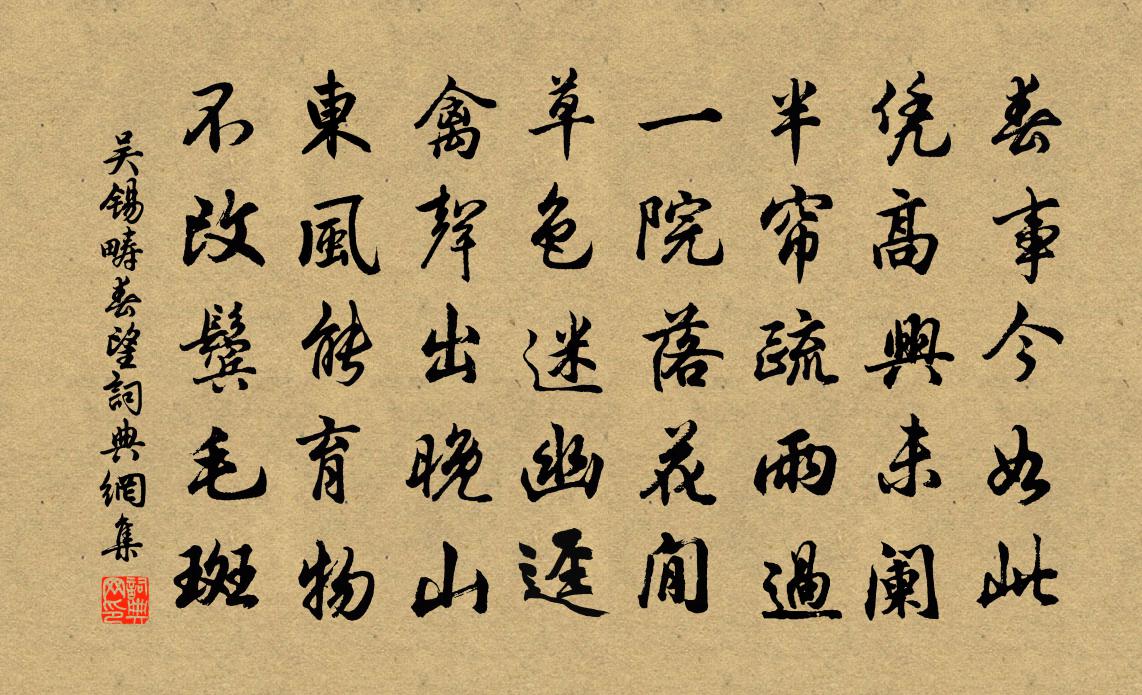 春事今如此
凭高興未闌
半帘疏雨過
一院落花閒
草色迷幽逕
禽聲出晚山
東風能育物
不改鬢毛斑
吴錫疇春望詞典網集
詞典网印